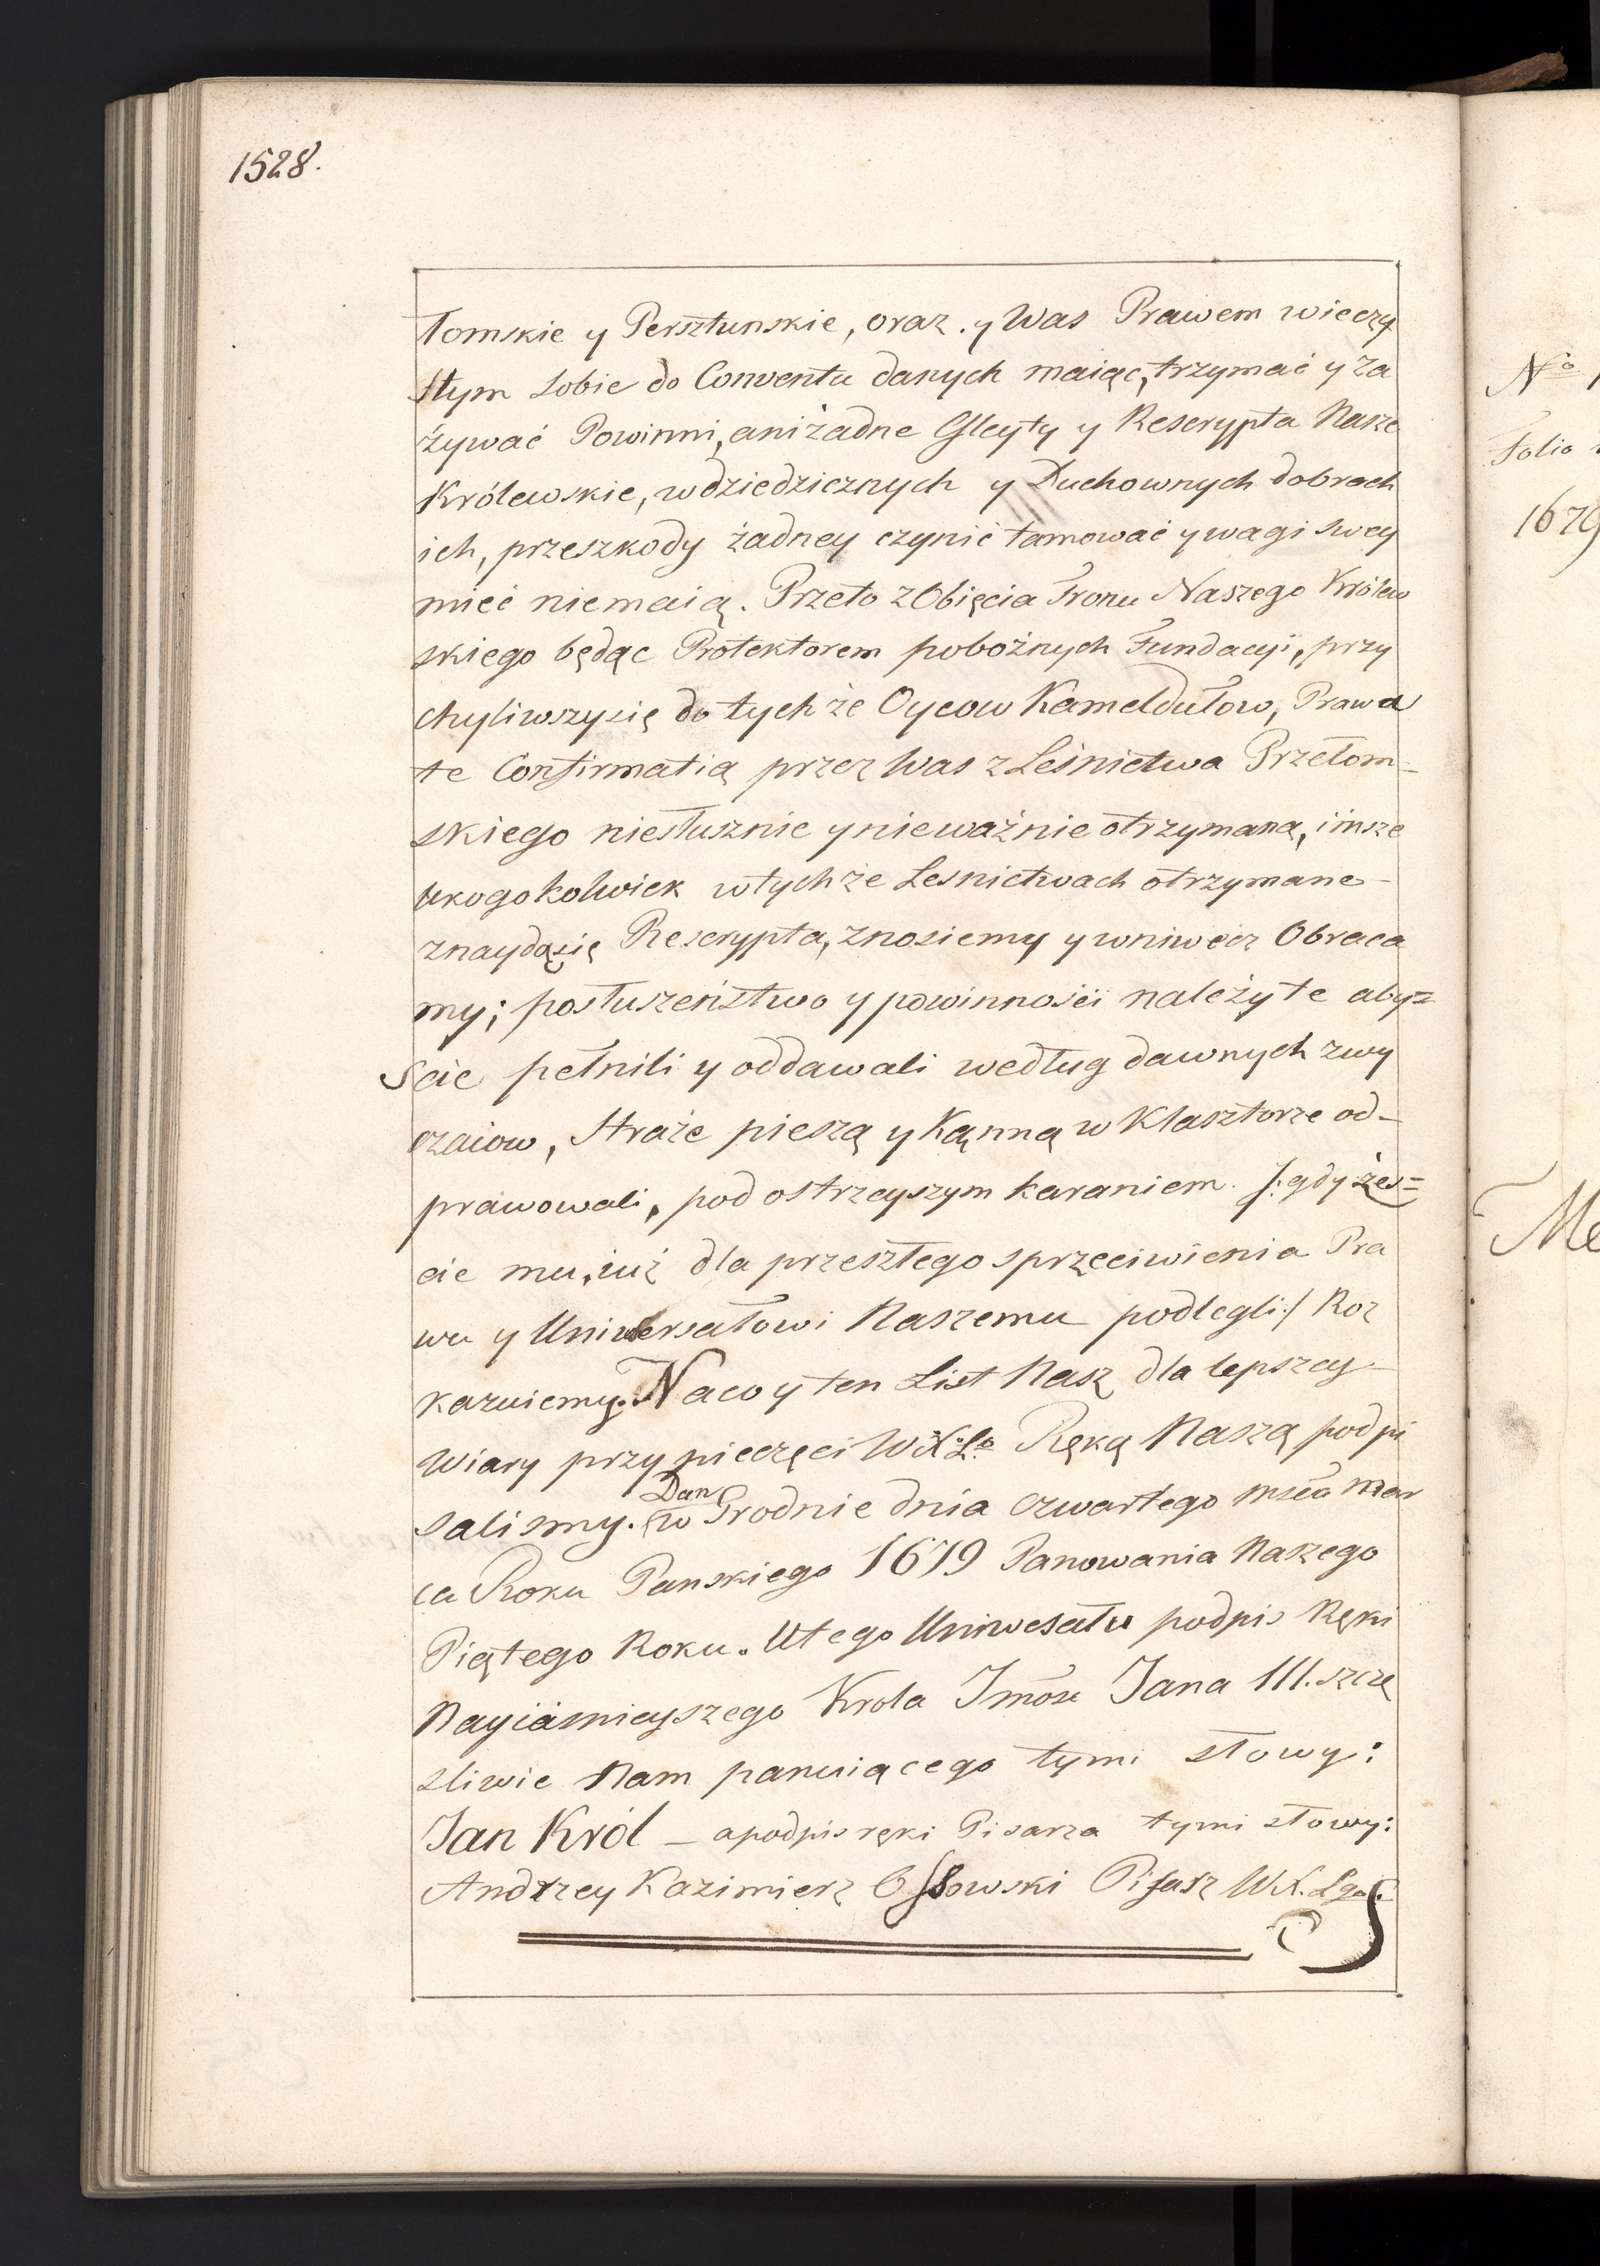 1528.
łomskie y Persztunskie, oraz y Was Prawem wieczy
stym sobie do Conventu danych maiąc, trzymać y za
żywać Powinni, ani żadne Gleyty y Reserypta Nasze
Królewskie, w dziedzicznych y Duchownych dobrach
ich, przeszkody żadney czynić tamować y wagi swey
mieć niemaią. Przeto z Obięcia Tronu Naszego Królew
skiego będąc Protektorem pobożnych Fundacyi, przy
chyliwszysię do tych że Oycow Kameldułow, Prawa
te Confirmatią przez Was z Leśnictwa Przełom-
skiego niesłusznie y nieważnie otrzymaną, i insze
ukogokolwiek w tychże Lesnictwach otrzymane-
znaydąsię Reserypta, znosiemy y wniwecz Obraca
my; posłuszeństwo y powinnośći należyte abyz
scie pełnili y oddawali według dawnych zwy
czaiow, Straże pieszą y Kąnną w Klasztorze od-
prawowali, pod ostrzeyszym karaniem. /: gdyżes=
cie mu, iuż dla przeszłego sprzęciwienia Pra
wu y Uniwersałowi Naszemu podlegli :/ Roz
kazuiemy. Na co y ten List Nasz dla lepszey-
Wiary przy pieczęci W X: Lo Ręką Naszą podpi
salismy. Dan w Grodnie dnia czwartego mśca mar
ca Roku Panskiego 1679 Panowania Naszego
Piątego Roku. U tego Uniwesału podpis Ręki
Nayiasnieyszego Krola Jmośći Jana III. szczę
sliwie Nam panuiącego tymi słowy:
Jan Król – a podpis ręki Pisarza tymi słowy:
Andrzey Kazimierz Pisarz W X. Lgo.
No
Folio
1679
Me